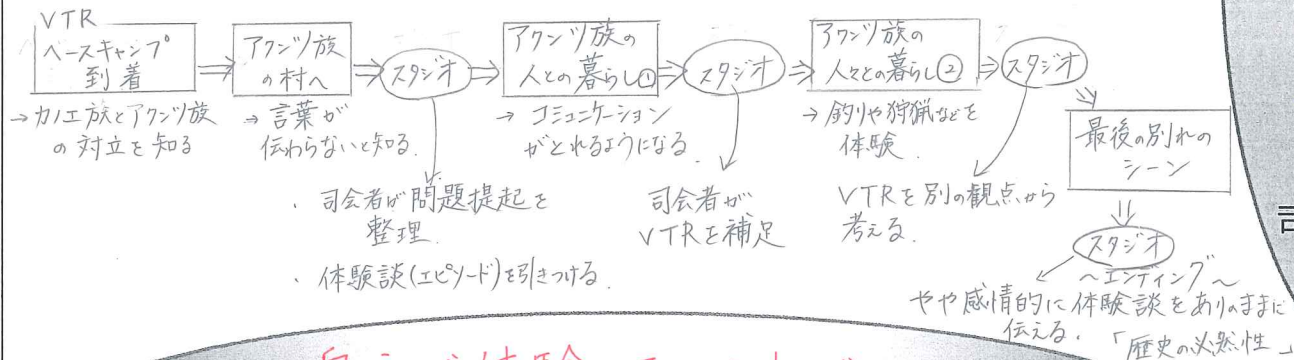 VTR
ベースキャンプ
到着
→カノエ族とアクンツ族
の対立を知る
アクンツ族
の村へ
→言葉が
伝わらないと知る.
スタジオ
・司会者が問題提起を
整理.
・体験談(エピソード)を引きつける.
アクンツ族の
人との暮らし①
→コミュニケーション
がとれるようになる.
スタジオ
司会者が
VTRを補足
アクンツ族の
人々との暮らし②
→釣りや狩猟などを
体験.
スタジオ
VTRを別の観点から
考える.
最後の別れの
シーン
スタジオ
~エンディング~
やや感情的に体験談をありのままに
伝える.「歴史の必然性」